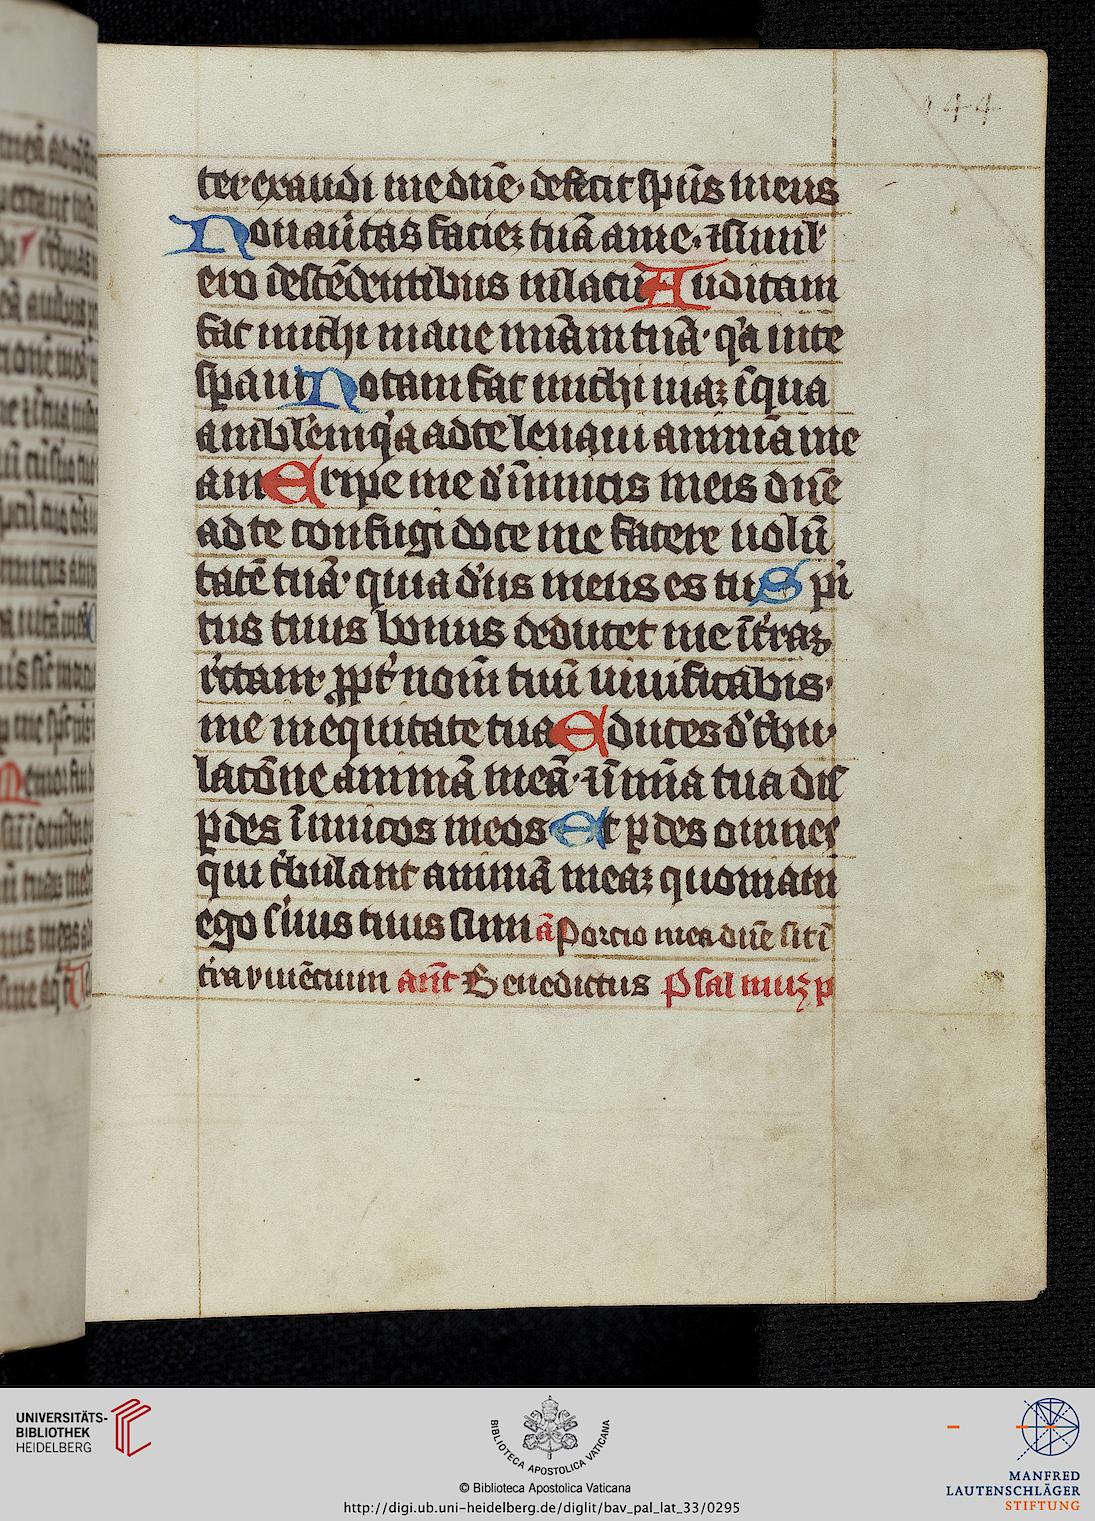 144
ter exaudi me dñe· defecit spũs meus
Non aũtas faciez tuã a me· ⁊ simil'
ero descẽdentibus in lacũ Auditam
fac michi mane mĩam tuã· q'a in te
spaui Notam fac michi uiaz ĩ qua
ambl'em q'a ad te leuaui animã me
am Eripe me d' ĩimicis meis dñe
ad te confugi doce me facere uolũ
tatẽ tuã· quia d'us meus es tu Spĩ
tus tuus bonus deducet me ĩ t'raz
r'ctam· ꝓpt' nom̃ tuũ uiuificabis·
me in equitate tua Educes d' t'bu·
lacõne animã meã· ⁊ ĩ mĩa tua dis
ꝑdes ĩimicos meos Et ꝑdes omnes
qui t'bulant animã meaz quoniam
ego s'uus tuus sum ã Porcio mea dñe sit ĩ
t'ra viuẽcium añt Benedictus Psalmuz p
UNIVERSITÄTS-
BIBLIOTHEK
HEIDELBERG
BIBLIOTECA APOSTOLICA VATICANA
© Biblioteca Apostolica Vaticana
http://digi.ub.uni-heidelberg.de/diglit/bav_pal_lat_33/0295
MANFRED
LAUTENSCHLÄGER
STIFTUNG